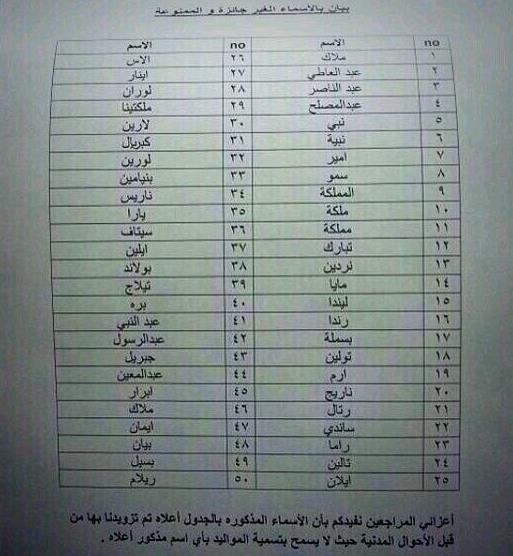 بيان بالأسماء الغير جائزة و الممنوعة
no الاسم no الاسم
١ ملاك ٢٦ الاس
٢ عبد العاطي ٢٧ اينار
٣ عبد الناصر ٢٨ لوران
٤ عبدالمصلح ٢٩ ملكتينا
٥ نبي ٣٠ لارين
٦ نبية ٣١ كبريال
٧ امير ٣٢ لورين
٨ سمو ٣٣ بنيامين
٩ المملكة ٣٤ ناريس
١٠ ملكة ٣٥ يارا
١١ مملكة ٣٦ سيتاف
١٢ تبارك ٣٧ ايلين
١٣ نردين ٣٨ بولاند
١٤ مايا ٣٩ تيلاج
١٥ ليندا ٤٠ بره
١٦ رندا ٤١ عبد النبي
١٧ بسملة ٤٢ عبدالرسول
١٨ تولين ٤٣ جبريل
١٩ ارم ٤٤ عبدالمعين
٢٠ ناريج ٤٥ ابرار
٢١ رتال ٤٦ ملاك
٢٢ ساندي ٤٧ ايمان
٢٣ راما ٤٨ بيان
٢٤ تالين ٤٩ بسيل
٢٥ ايلان ٥٠ ريلام
أعزائي المراجعين نفيدكم بأن الأسماء المذكوره بالجدول أعلاه تم تزويدنا بها من
قبل الأحوال المدنية حيث لا يسمح بتسمية المواليد بأي اسم مذكور أعلاه .